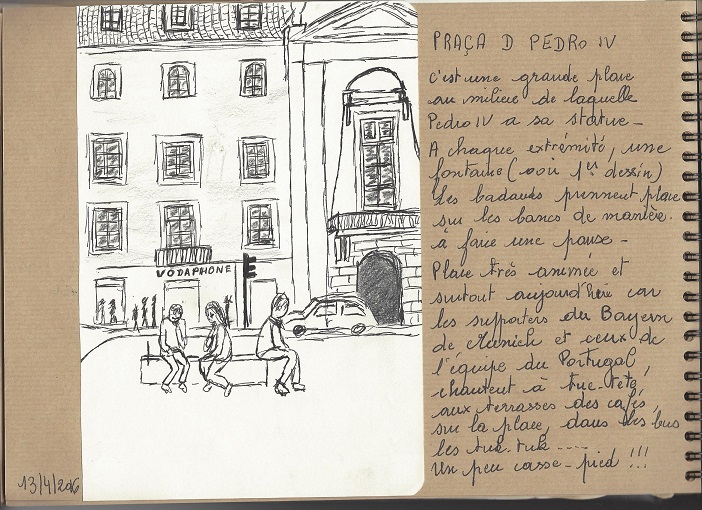 VODAPHONE
13/4/2016
PRAÇA D PEDRO IV
c'est une grande place
au milieu de laquelle
Pedro IV a sa statue -
A chaque extrémité, une
fontaine (voir 1er dessin)
Les badauds prennent place
sur les bancs de manière
à faire une pause -
Place très animée et
surtout aujourd'hui car
les supporters du Bayern
de Munich et ceux de
l'équipe du Portugal,
chantent à tue-tête
aux terrasses des cafés,
sur la place, dans les bus
les tuk-tuk ----
Un peu casse-pied !!!